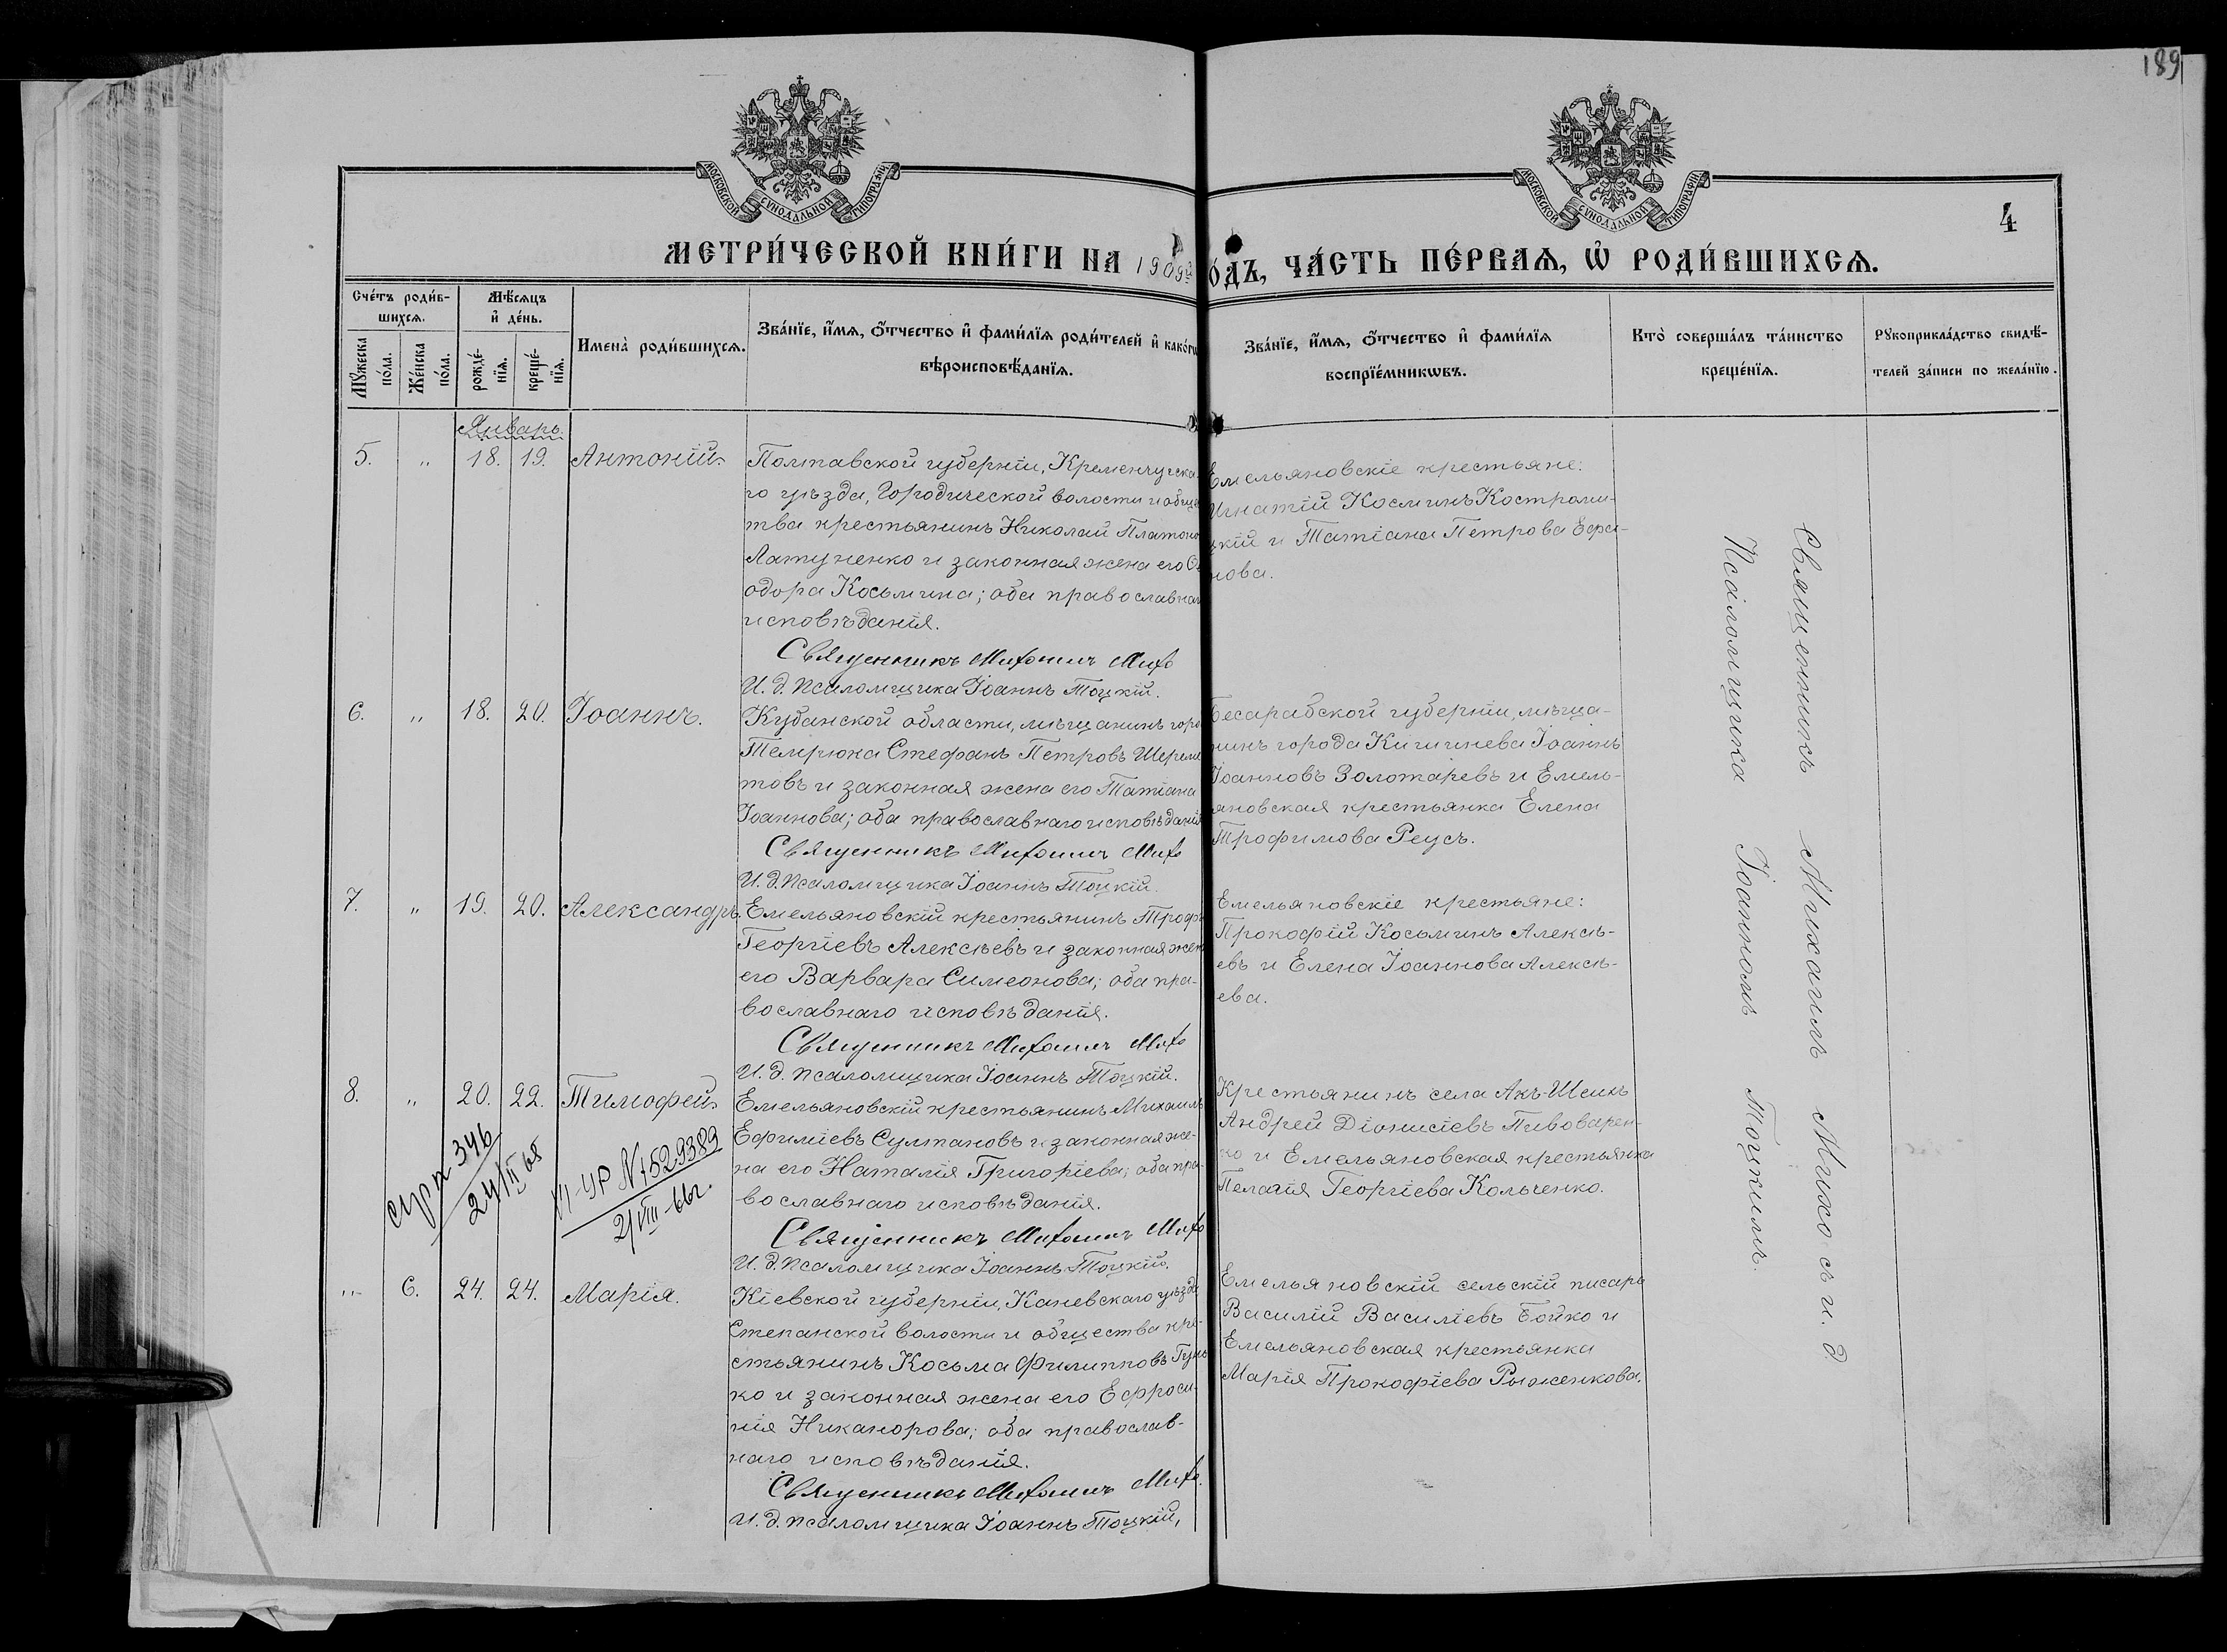 189
МОСКОВСКОЙ СѴНОДАЛЬНОЙ ТИПОГРАФІИ
МОСКОВСКОЙ СѴНОДАЛЬНОЙ ТИПОГРАФІИ
4
МЕТРИ́ЧЕСКОЙ КНИ́ГИ НА 1909й
О́ДЪ, ЧА́СТЬ ПЕ́РВАѦ, Ѡ҆ РОДИ́ВШИХСѦ.
Сче́тъ роди́в-
шихсѧ.
Мꙋ́жеска
по́ла.
Же́нска
по́ла.
Мѣ́сѧцъ
и҆ де́нь.
рожде́-
нїѧ.
креще́-
нїѧ.
Имена̀ роди́вшихсѧ.
Зва́нїе, и҆́мѧ, ѻ҆́тчество и҆ фами́лїѧ роди́телей и҆ како́гѡ
вѣроисповѣ́данїѧ.
Зва́нїе, и҆́мѧ, ѻ҆́тчество и҆ фами́лїѧ
воспрїе́мникѡвъ.
Кто̀ соверша́лъ та́инство
креще́нїѧ.
Рꙋкоприкла́дство свидѣ́-
телей за́писи по жела́нїю.
Январь.
5. " 18. 19. Антоній.
Полтавской губерніи, Кременчугска
го уѣзда, Городической волости и обще
тва крестьянинъ Николай Платоно
Латуненко и законная жена его Ѳе
одора Косьмина; оба православна
исповѣданія.
Священникъ Михаилъ Михо
И. д. псаломщика Іоаннъ Тоцкій.
Емельяновскіе крестьяне:
Игнатій Косминъ Костроми-
цкій и Татіана Петрова Ефи-
нова.
6. " 18. 20. Іоаннъ.
Кубанской области, мѣщанинъ горо
Темрюка Стефанъ Петровъ Шереме
товъ и законная жена его Татіана
Іоаннова; оба православнаго исповѣданія
Священникъ Михаилъ Михо
И. д. псаломщика Іоаннъ Тоцкій.
Бесарабской губерніи, мѣща-
нинъ города Кишинева Іоаннъ
Іоанновъ Золотаревъ и Емель-
яновская крестьянка Елена
Трофимова Реусъ.
7. " 19. 20. Александръ.
Емельяновскій крестьянинъ Трофи
Георгіевъ Алексѣевъ и законная жен
его Варвара Симеонова; оба пра-
вославнаго исповѣданія.
Священникъ Михаилъ Михо
И. д. псаломщика Іоаннъ Тоцкій.
Емельяновскіе крестьяне:
Прокофій Косьминъ Алексѣ-
евъ и Елена Іоаннова Алексѣ-
ева.
8. " 20. 22. Тимофей.
Емельяновскій крестьянинъ Михаилъ
Ефиміевъ Султановъ и законная же-
на его Наталія Григоріева; оба пра-
вославнаго исповѣданія.
Священникъ Михаилъ Михо
И. д. псаломщика Іоаннъ Тоцкій.
Крестьянинъ села Акъ-Шеихъ
Андрей Діонисіевъ Пивоварен-
ко и Емельяновская крестьянка
Пелагія Георгіева Кольченко.
346
24/II 68
УР N 1529389
2/VIII-66г.
" 6. 24. 24. Марія.
Кіевской губерніи, Каневскаго уѣзда
Степанской волости и общества кре-
стьянинъ Косьма Филипповъ
ко и законная жена его Ефроси-
нія Никанорова; оба православ-
наго исповѣданія.
Священникъ Михаилъ Михо.
И. д. псаломщика Іоаннъ Тоцкій,
Емельяновскій сельскій писарь
Василій Василіевъ Бойко и
Емельяновская крестьянка
Марія Прокофіева Рыженкова.
Священникъ Михаилъ Михо съ и. д.
Псаломщика Іоанномъ Тоцкимъ.